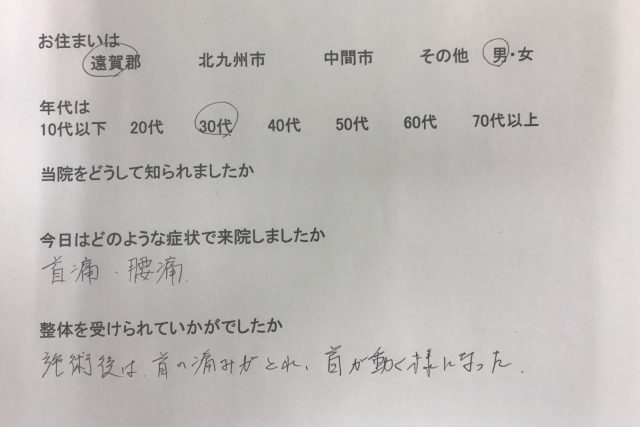 お住まいは
遠賀郡 北九州市 中間市 その他 男・女
年代は
10代以下 20代 30代 40代 50代 60代 70代以上
当院をどうして知られましたか
今日はどのような症状で来院しましたか
首痛・腰痛.
整体を受けられていかがでしたか
施術後は、首の痛みがとれ、首が動く様になった.